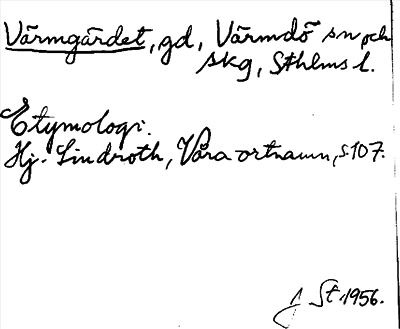 Värmgärdet, gd, Värmdö sn och
skg, Sthlms l.
Etymologi.
Hj. Lindroth, Våra ortnamn, s. 107.
J St 1956.